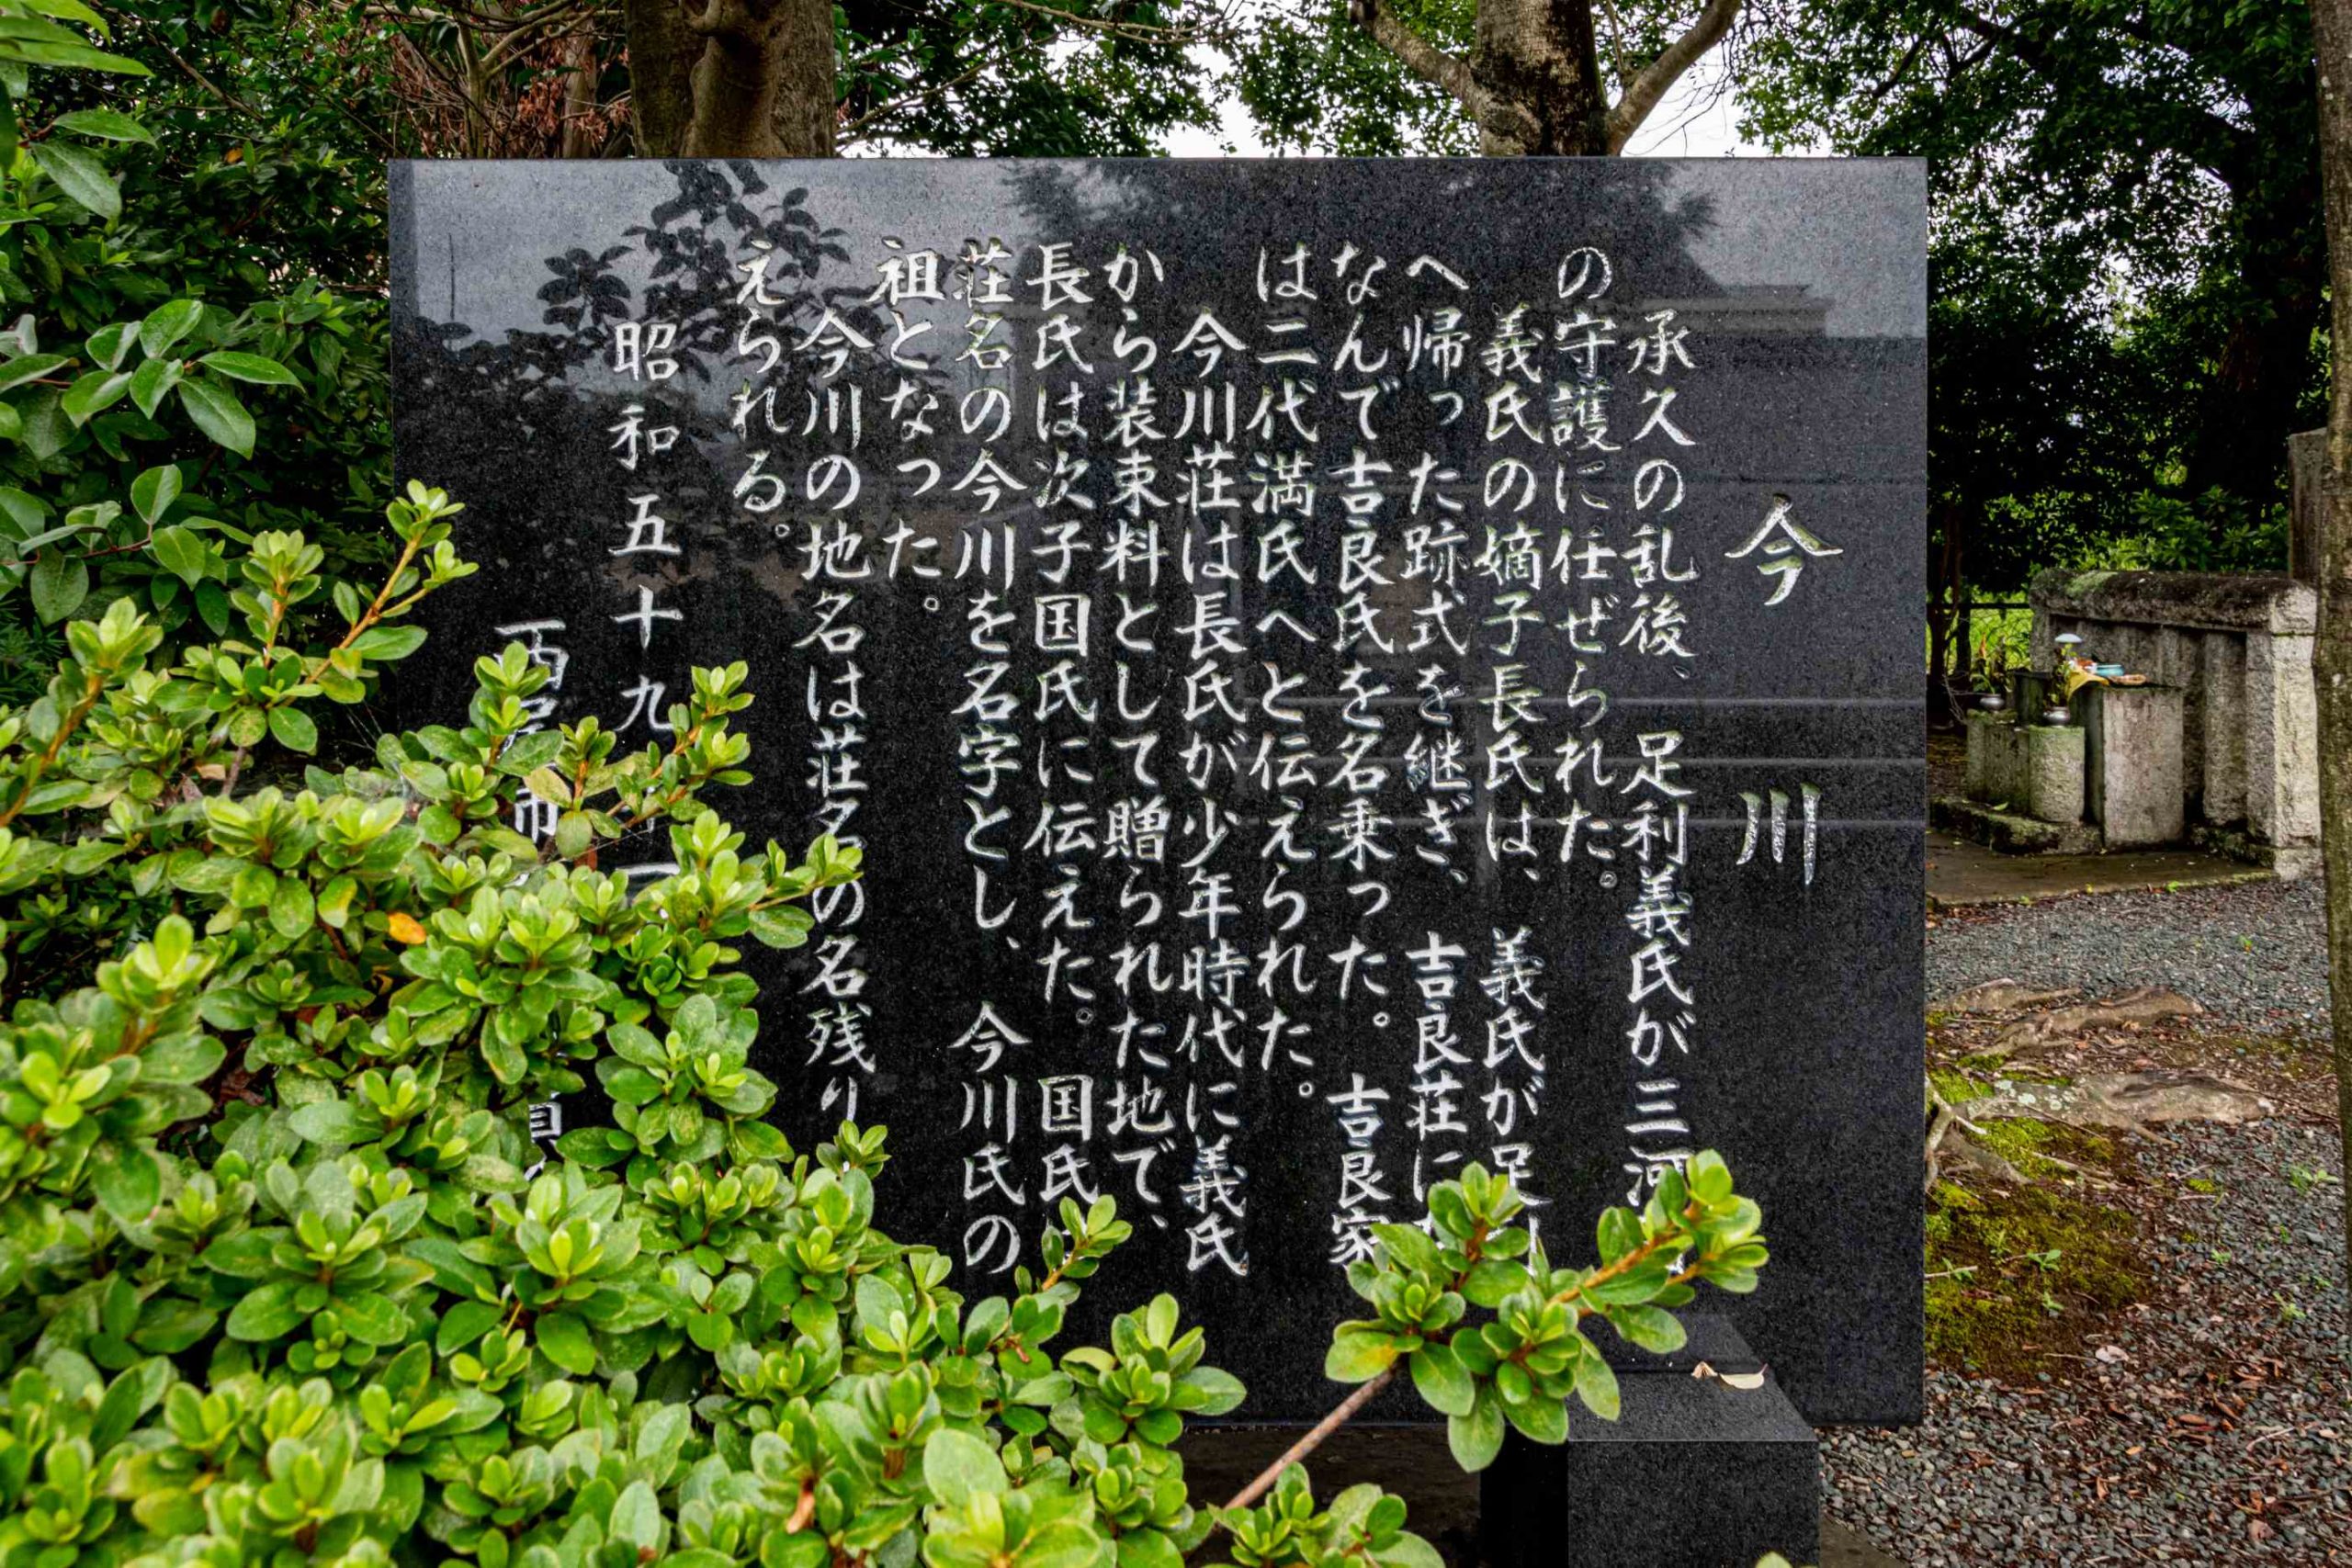 今川
承久の乱後、足利義氏が三河
の守護に任ぜられた。
義氏の嫡子長氏は、義氏が足利
へ帰った跡式を継ぎ、吉良荘に
なんで吉良氏を名乗った。吉良家
は二代満氏へと伝えられた。
今川荘は長氏が少年時代に義氏
から装束料として贈られた地で、
長氏は次子国氏に伝えた。国氏
荘名の今川を名字とし、今川氏の
祖となった。
今川の地名は荘名の名残り
えられる。
昭和五十九
西尾市